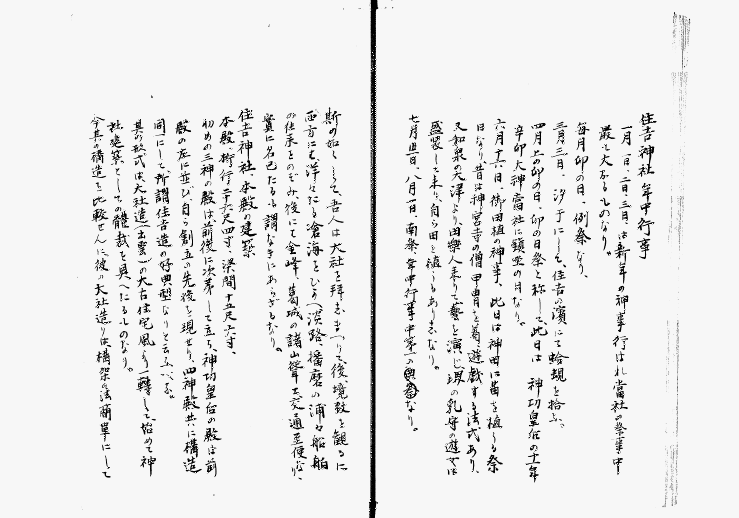 住吉神社年中行事
一月一日、二日、三日、は新年の神事行はれ當社の祭事中
最も大なるものなり。
毎月卯の日、例祭なり、
三月三日、汐干にして、住吉の濱にて蛤蜆を拾ふ、
四月上の卯の日、卯の日祭と称して此日は 神功皇后の十一年
辛卯大神當社に鎮坐の日なり。
六月十六日、御田植の神事、此日は神田に苗を植うる祭
日なり昔は神宮寺の僧甲冑を着遊戯する法式あり、
又和泉の天津より田樂人来りて藝を演じ現の乳守の遊女は
盛装して来り、自ら田を植うるありさまなり。
七月 日、八月一日、南祭、年中行事中第一の なり。
斯の如くして、吾人は大社を拜しまつりて後、境致を觀るに
西方には洋々たる滄海をひかへ淡路、播磨の浦々船舶
の往来をのぞみ後にして金峰、葛城の諸山聳え交通至便なり、
實に名已たるも謂なきにあらざるなり。
住吉神社、本殿の建築
本殿、桁行二十六尺四寸、梁間十五尺六寸、
初めの三神の殿は、前後に次第して立ち、神功皇后の殿は前
殿の左に並び、自ら創立の先後を現せり、四神殿共に構造
同一にして、所謂住吉造の好典型なりと云ふべき。
其の形式は、大社造(出雲)の太古住宅風より一轉して、始めて神
社建築としての體裁を具へたるものなり。
今其の構造を比較せんに彼の大社造りは構架の法簡単にして